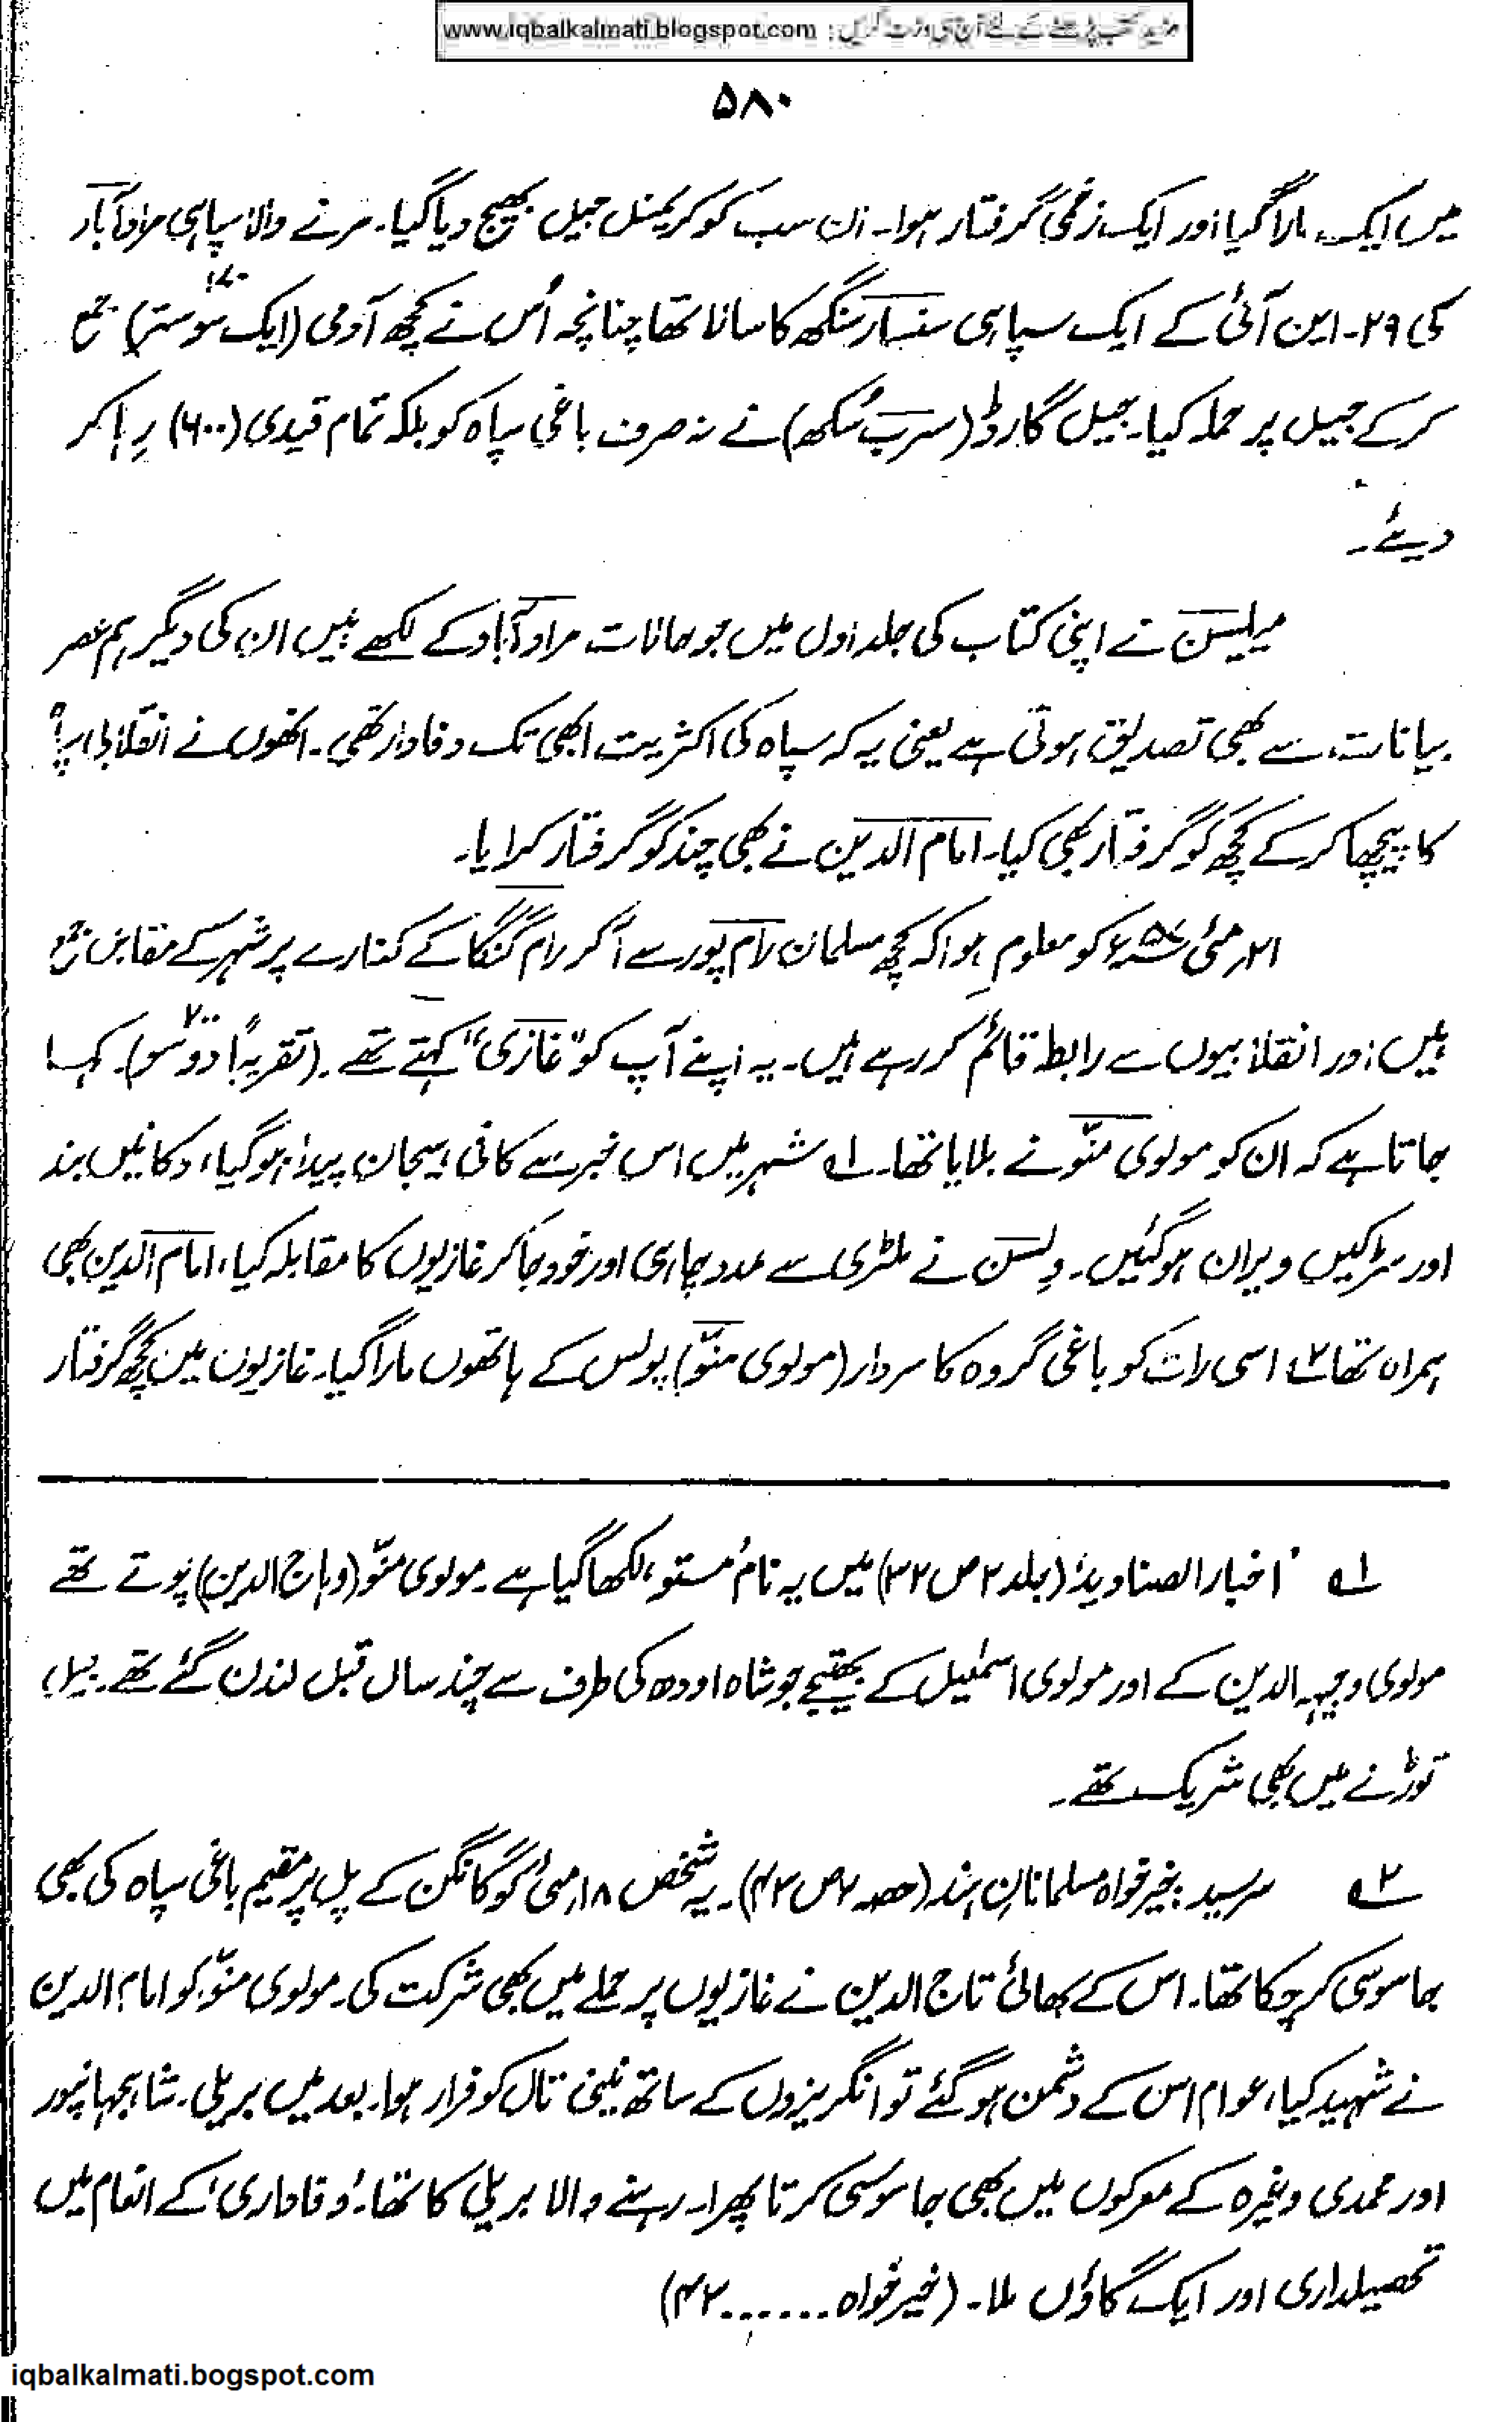 مزید کتب پڑھنے کے لئے آج ہی وزٹ کریں : www.iqbalkalmati.blogspot.com
۵۸۰
میں ایک مارا گیا اور ایک زخمی گرفتار ہوا۔ ان سب کو کریمنل جیل بھیج دیا گیا۔ مرنے والا سپاہی مرادآباد
کی ۲۹۔ این آئی کے ایک سپاہی سنسار سنگھ کا سالا تھا چنانچہ اُس نے کچھ آدمی (ایک سو ستر) ۱۷۰ جمع
کرکے جیل پر حملہ کیا۔ جیل گارڈ (سرب سُکھ) نے نہ صرف باغی سپاہ کو بلکہ تمام قیدی (۶۰۰) رِہا کر
دیئے۔
میلیسن نے اپنی کتاب کی جلد اول میں جو حالات مرادآباد کے لکھے ہیں ان کی دیگر ہم عصر
بیانات سے بھی تصدیق ہوتی ہے یعنی یہ کہ سپاہ کی اکثریت ابھی تک وفادار تھی۔ انھوں نے انقلابی سپاہ
کا پیچھا کرکے کچھ کو گرفتار بھی کیا۔ امام الدین نے بھی چند کو گرفتار کرایا۔
۲۱ مئی ۵۷ء کو معلوم ہوا کہ کچھ مسلمان رام پور سے آکر رام گنگا کے کنارے پر شہر کے مقابل جمع
ہیں اور انقلابیوں سے رابطہ قائم کر رہے ہیں۔ یہ اپنے آپ کو "غازی" کہتے تھے۔ (تقریباً دو سو) ۲۰۰ کہا
جاتا ہے کہ ان کو مولوی منّو نے بلایا تھا۔ ۱؎ شہر میں اس خبر سے کافی ہیجان پیدا ہوگیا، دکانیں بند
اور سڑکیں ویران ہوگئیں۔ ولسن نے ملٹری سے مدد چاہی اور خود جاکر غازیوں کا مقابلہ کیا، امام الدین بھی
ہمراہ تھا ۲؎ اسی رات کو باغی گروہ کا سردار (مولوی منّو) پولس کے ہاتھوں مارا گیا۔ غازیوں میں کچھ گرفتار
۱؎ 'اخبار الصنادید' (جلد ۲ ص ۳۲) میں یہ نام 'مستو' لکھا گیا ہے۔ مولوی منّو (وہاج الدین) پوتے تھے
مولوی وجیہہ الدین کے اور مولوی اسمٰعیل کے بھتیجے جو شاہ اودھ کی طرف سے چند سال قبل لندن گئے تھے۔ جیل
توڑنے میں بھی شریک تھے۔
۲؎ سرسید: خیرخواہ مسلمانانِ ہند (حصہ ۲ ص ۴۲)۔ یہ شخص ۱۸ مئی کو گانگن کے پل پر مقیم باغی سپاہ کی بھی
جاسوسی کرچکا تھا۔ اس کے بھائی تاج الدین نے غازیوں پر حملے میں بھی شرکت کی۔ مولوی منّو کو امام الدین
نے شہید کیا، عوام اس کے دشمن ہوگئے تو انگریزوں کے ساتھ نینی تال کو فرار ہوا۔ بعد میں بریلی۔ شاہجہانپور
اور محمدی وغیرہ کے معرکوں میں بھی جاسوسی کرتا پھرا۔ رہنے والا بریلی کا تھا۔ 'وفاداری' کے انعام میں
تحصیلداری اور ایک گاؤں ملا۔ (خیرخواہ ...... ۴۲)
iqbalkalmati.bogspot.com